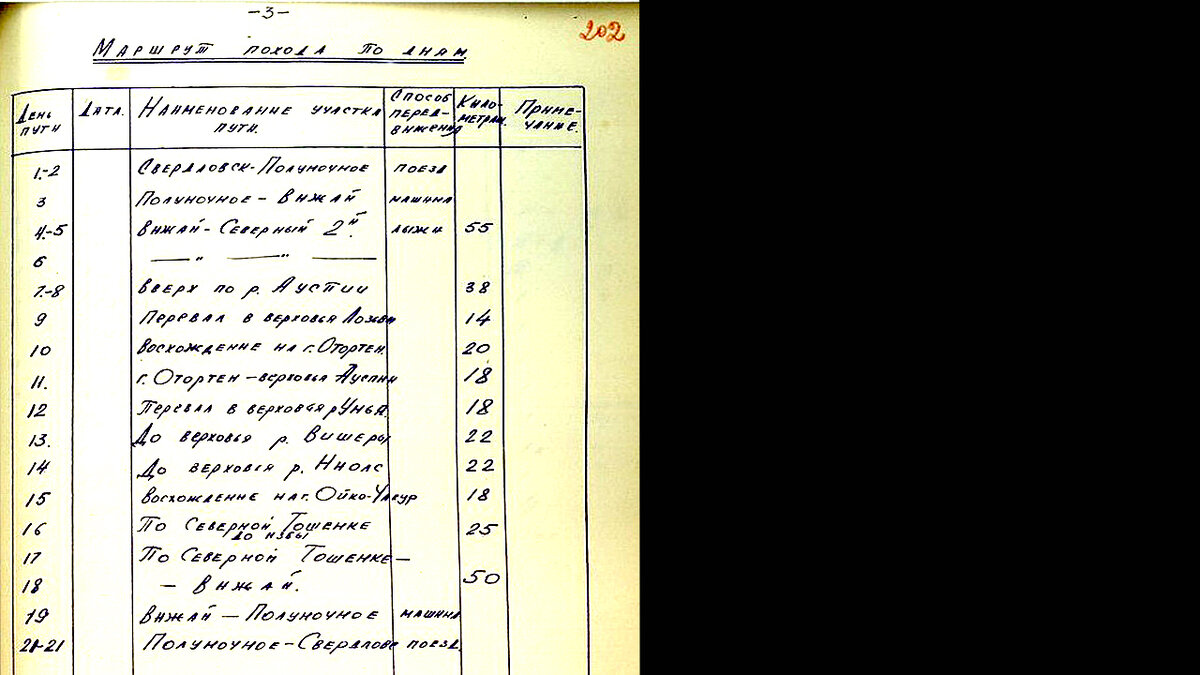 -3-
202
Маршрут похода по дням.
День пути Дата. Наименование участка пути. Способ передвижения Километраж. Примечание.
1.-2 Свердловск-Полуночное поезд
3 Полуночное - Вижай машина
4.-5 Вижай-Северный 2й. лыжи 55
6 —— " —— " ——
7.-8 вверх по р. Ауспии 38
9 Перевал в верховья Лозьвы 14
10 Восхождение на г. Отортен. 20
11. г. Отортен - верховья Ауспии 18
12 Перевал в верховья р Унья. 18
13. До верховья р. Вишеры 22
14 До верховья р. Ниолс 22
15 Восхождение на г. Ойко-Чакур 18
16 По Северной Тошемке до избы 25
17 По Северной Тошемке -
18 - Вижай. 50
19 Вижай - Полуночное машина
21-21 Полуночное-Свердловс поезд.